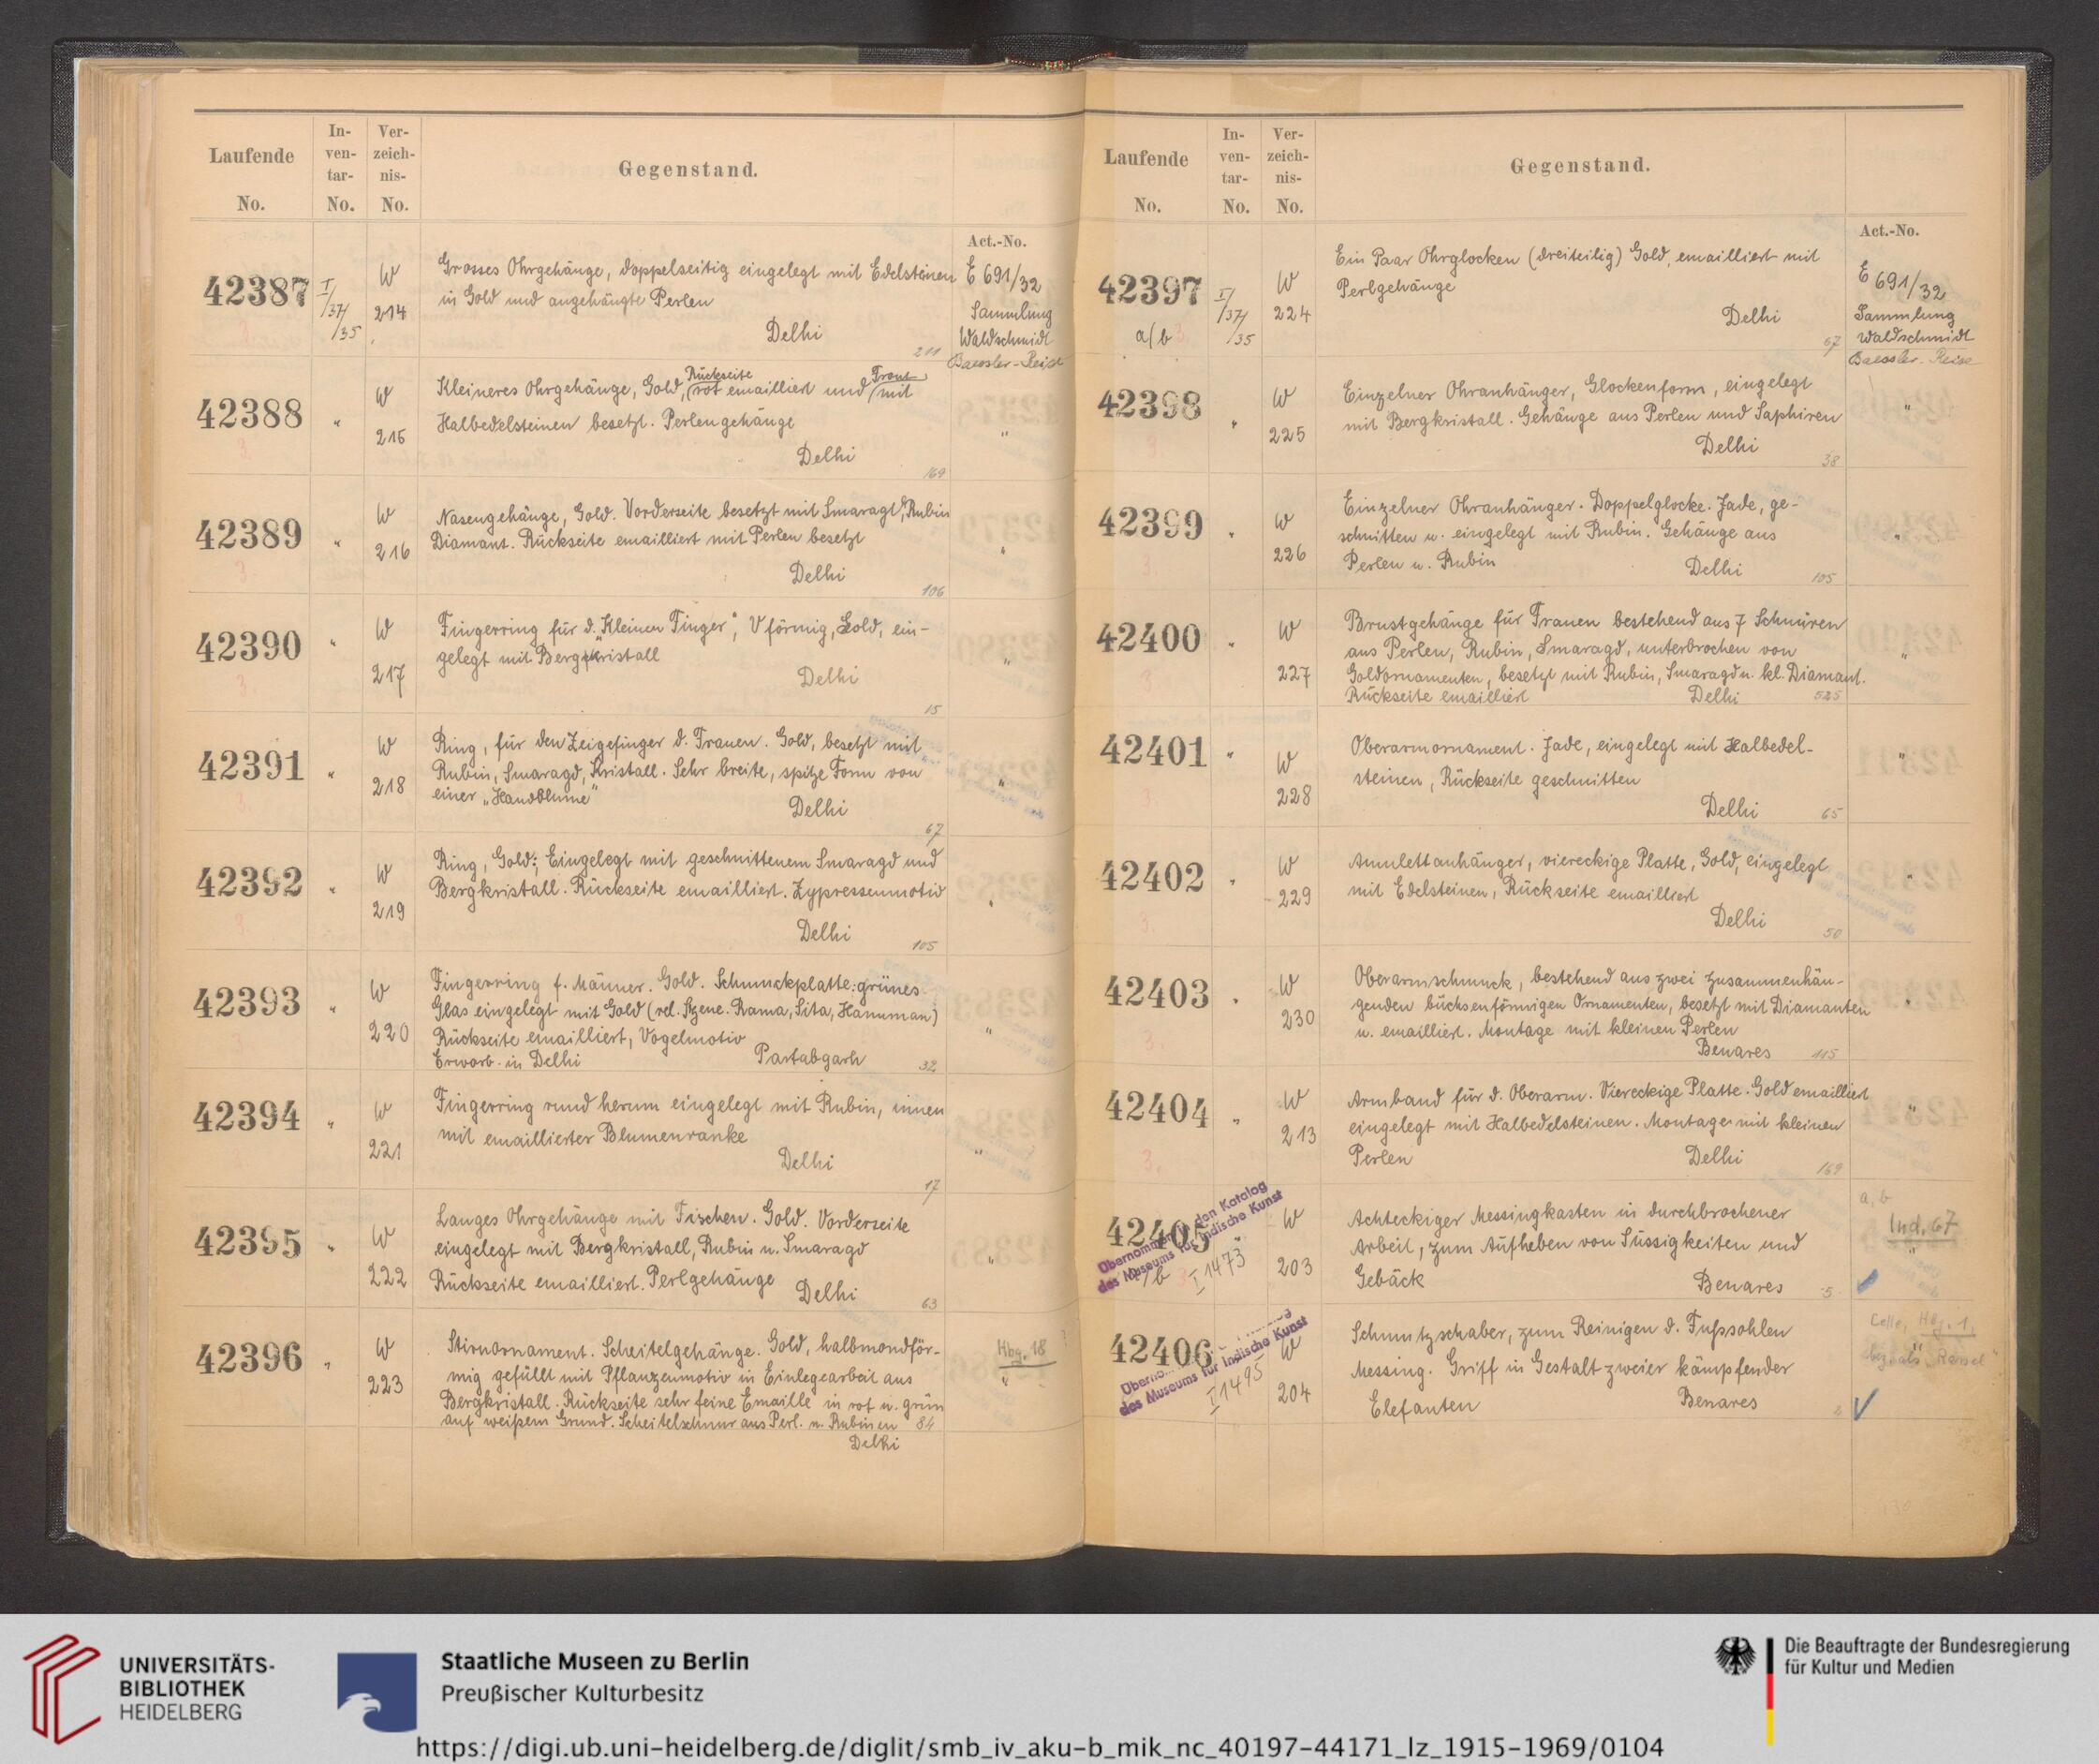 Laufende No.
In-ven-tar- No.
Ver-zeich-nis- No.
Gegenstand.
Act.-No.
42387
I/37/35
W 214
Grosses Ohrgehänge, doppelseitig eingelegt mit Edelsteinen
in Gold und angehängte Perlen
Delhi
211
E 691/32
Sammlung
Waldschmidt
Baessler-Reise
42388
"
W 215
Kleineres Ohrgehänge, Gold, Rückseite rot emailliert und Front mit
Halbedelsteinen besetzt. Perlengehänge
Delhi
169
"
42389
"
W 216
Nasengehänge, Gold. Vorderseite besetzt mit Smaragd, Rubin
Diamant. Rückseite emailliert mit Perlen besetzt
Delhi
106
"
42390
"
W 217
Fingerring für d. "Kleinen Finger", V förmig, Gold, ein-
gelegt mit Bergkristall
Delhi
15
"
42391
"
W 218
Ring, für den Zeigefinger d. Frauen. Gold, besetzt mit
Rubin, Smaragd, Kristall. Sehr breite, spitze Form von
einer „Handblume"
Delhi
67
"
42392
"
W 219
Ring, Gold; Eingelegt mit geschnittenem Smaragd und
Bergkristall. Rückseite emailliert. Zypressenmotiv
Delhi
105
"
42393
"
W 220
Fingerring f. Männer. Gold. Schmuckplatte: grünes
Glas eingelegt mit Gold (rel. Szene. Rama, Sita, Hanuman)
Rückseite emailliert, Vogelmotiv
Erworb. in Delhi Partabgarh
32
"
42394
"
W 221
Fingerring rund herum eingelegt mit Rubin, innen
mit emaillierter Blumenranke
Delhi
17
"
42395
"
W 222
Langes Ohrgehänge mit Fischen. Gold. Vorderseite
eingelegt mit Bergkristall, Rubin u. Smaragd
Rückseite emailliert. Perlgehänge Delhi
63
"
42396
"
W 223
Stirnornament. Scheitelgehänge. Gold, halbmondför-
mig gefüllt mit Pflanzenmotiv in Einlegearbeit aus
Bergkristall. Rückseite sehr feine Emaille in rot u. grün
auf weißem Grund. Scheitelschnur aus Perl. u. Rubinen 84
Delhi
Hbg. 18
"
Laufende No.
In-ven-tar- No.
Ver-zeich-nis- No.
Gegenstand.
Act.-No.
42397
a/b
I/37/35
W 224
Ein Paar Ohrglocken (dreiteilig) Gold, emailliert mit
Perlgehänge
Delhi
67
E 691/32
Sammlung
Waldschmidt
Baessler-Reise
42398
"
W 225
Einzelner Ohranhänger, Glockenform, eingelegt
mit Bergkristall. Gehänge aus Perlen und Saphiren
Delhi
38
"
42399
"
W 226
Einzelner Ohranhänger. Doppelglocke. Jade, ge-
schnitten u. eingelegt mit Rubin. Gehänge aus
Perlen u. Rubin Delhi
105
"
42400
"
W 227
Brustgehänge für Frauen bestehend aus 7 Schnüren
aus Perlen, Rubin, Smaragd, unterbrochen von
Goldornamenten, besetzt mit Rubin, Smaragd u. kl. Diamant.
Rückseite emailliert Delhi 525
"
42401
"
W 228
Oberarmornament. Jade, eingelegt mit Halbedel-
steinen, Rückseite geschnitten
Delhi
65
"
42402
"
W 229
Amulettanhänger, viereckige Platte, Gold, eingelegt
mit Edelsteinen, Rückseite emailliert
Delhi
50
"
42403
"
W 230
Oberarmschmuck, bestehend aus zwei zusammenhän-
genden büchsenförmigen Ornamenten, besetzt mit Diamanten
u. emailliert. Montage mit kleinen Perlen
Benares
115
"
42404
"
W 213
Armband für d. Oberarm. Viereckige Platte. Gold emailliert
eingelegt mit Halbedelsteinen. Montage mit kleinen
Perlen Delhi
169
"
42405
a/b
Übernommen in den Katalog
des Museums für Indische Kunst
I 1473
W 203
Achteckiger Messingkasten in durchbrochener
Arbeit, zum Aufheben von Süssigkeiten und
Gebäck Benares
5
a, b
Ind. 67
"
42406
des Museums für Indische Kunst
I 1495
W 204
Schmutzschaber, zum Reinigen d. Fußsohlen
Messing. Griff in Gestalt zweier kämpfender
Elefanten Benares
2
Celle, Hbg. 1.
UNIVERSITÄTS-
BIBLIOTHEK
HEIDELBERG
Staatliche Museen zu Berlin
Preußischer Kulturbesitz
Die Beauftragte der Bundesregierung
für Kultur und Medien
https://digi.ub.uni-heidelberg.de/diglit/smb_iv_aku-b_mik_nc_40197-44171_lz_1915-1969/0104